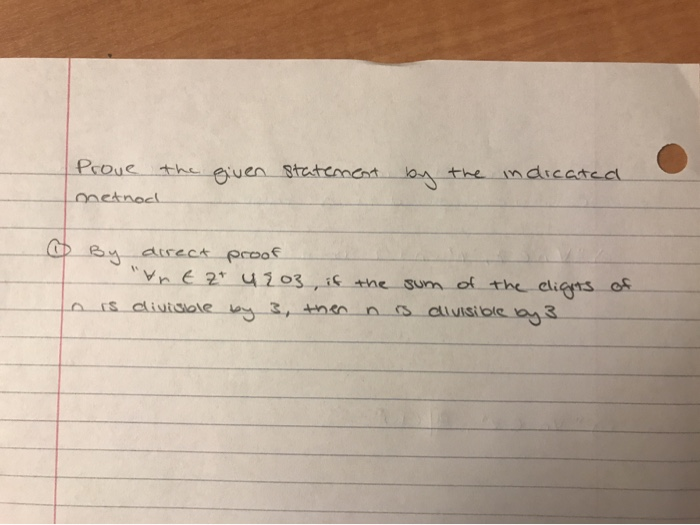 Prove the given statement by the indicated
method
① By direct proof
"∀n ∈ Z⁺ ∪ {0}, if the sum of the digits of
n is divisible by 3, then n is divisible by 3